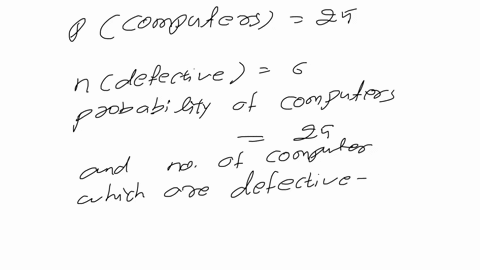 p (computers) = 25
n (defective) = 6
probability of computers
= 25
and no. of computer
which are defective -